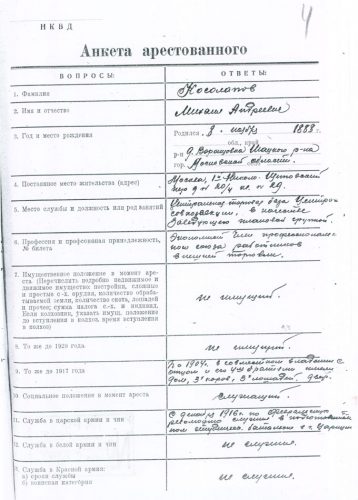 4
НКВД
Анкета арестованного
ВОПРОСЫ:
ОТВЕТЫ:
1. Фамилия
Косолапов
2. Имя и отчество
Михаил Андреевич
3. Год и место рождения
Родился 8 ноября 1888
обл. край
р-н д. Воронцовка Шацкого р-на
гор. Московской области.
4. Постоянное место жительства (адрес)
Москва, 1ая
пер д № 20/4 кв. № 29.
5. Место службы и должность или род занятий
Центральная торговая база
в качестве
Заведующего плановой группой.
6. Профессия и профсоюзная принадлежность, № билета
Экономист член профессиональ-
ного союза работников
внешней торговли.
7. Имущественное положение в момент аре-
ста (Перечислить подробно недвижимое и
движимое имущество: постройки, сложные
и простые с.-х. орудия, количество обраба-
тываемой земли, количество скота, лошадей
и прочее; сумма налога с.-х. и индивид.
Если колхозник, указать имущ. положение
до вступления в колхоз, время вступления
в колхоз)
не имущий.
8. То же до 1929 года
не имущий.
9. То же до 1917 года
До 1904г. в совместном владении с
отцом и его 4мя братьями имели
дом, 3 коров, 3 лошадей, двор.
10. Социальное положение в момент ареста
Служащий.
11. Служба в царской армии и чин
С декабря 1916г. по февральскую
революцию служил в подготовитель
ном батальоне в г. Царицын
12. Служба в белой армии и чин
не служил.
13. Служба в Красной армии:
а) сроки службы
б) воинская категория
не служил.